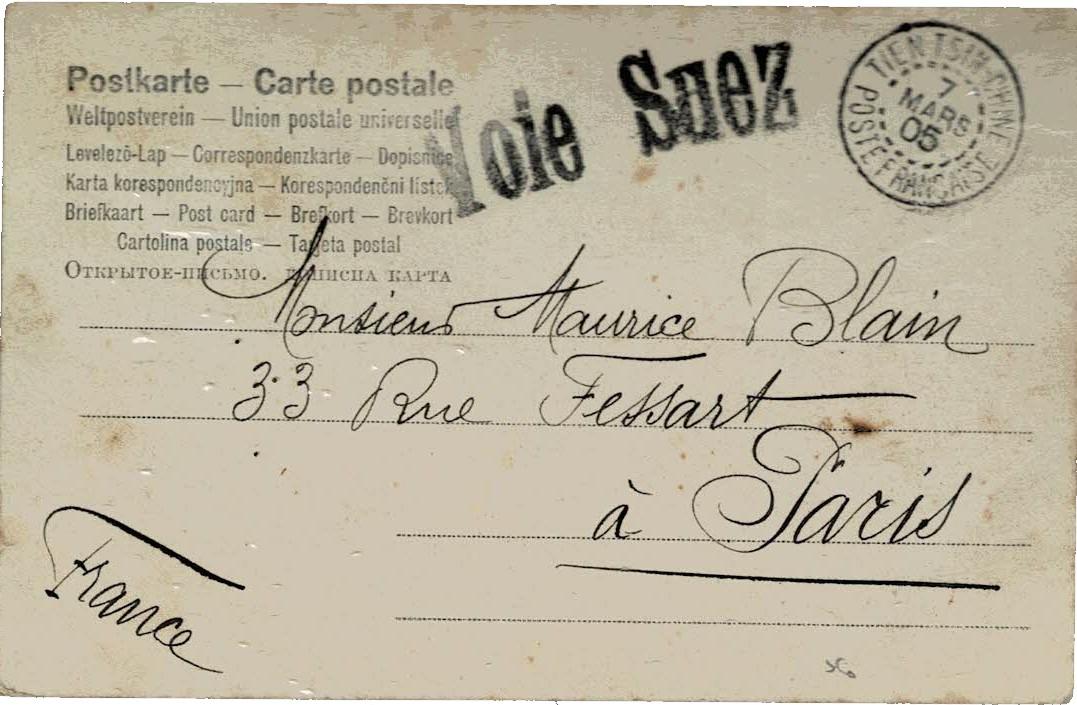 Postkarte — Carte postale
Weltpostverein — Union postale universelle
Levelező-Lap — Correspondenzkarte — Dopisnice
Karta korespondencyjna — Korespondenční lístek
Briefkaart — Post card — Brefkort — Brevkort
Cartolina postale — Tarjeta postal
Открытое-письмо. КАРТА
Voie Suez
TIEN TSIN-CHINE
7
MARS
05
POSTE FRANÇAISE
Monsieur Maurice Blain
33 Rue Fessart
à Paris
France